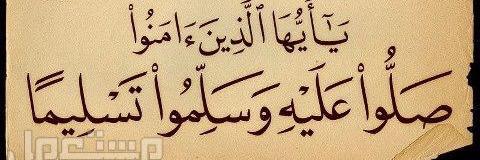 يَـٰٓأَيُّهَا ٱلَّذِينَ ءَامَنُوا۟
صَلُّوا۟ عَلَيْهِ وَسَلِّمُوا۟ تَسْلِيمًا
مستعمل